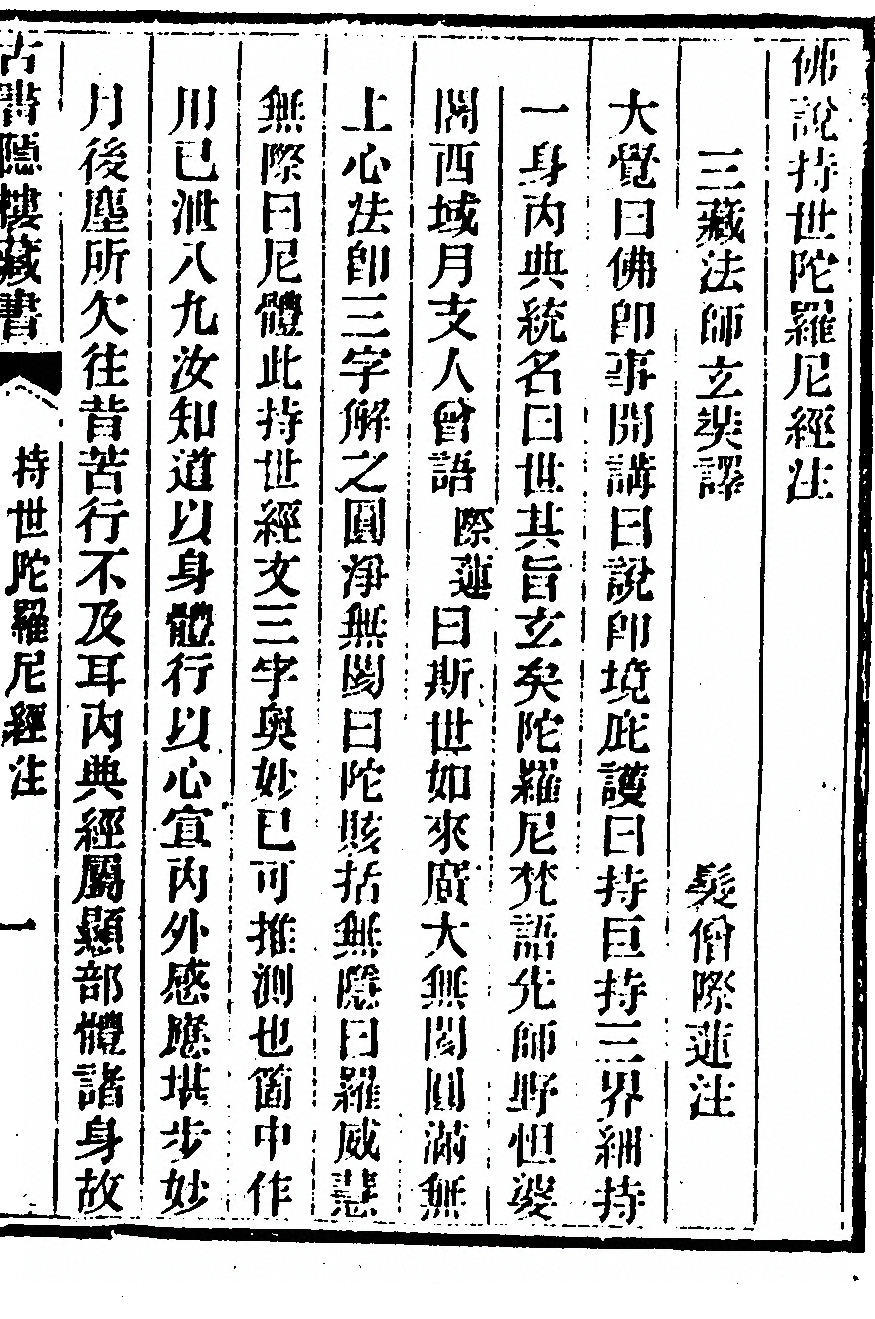 佛說持世陀羅尼經注
三藏法師玄奘譯 髮僧際蓮注
大覺曰佛卽事開講曰說卽境庇護曰持巨持三界細持
一身內典統名曰世其旨玄矣陀羅尼梵語先師野怛婆
闍西域月支人曾語際蓮曰斯世如來廣大無閡圓滿無
上心法卽三字解之圓淨無閡曰陀賅括無隱曰羅威慧
無際曰尼體此持世經文三字奧妙已可推測也箇中作
用已泄八九汝知道以身體行以心宣內外感應堪步妙
月後塵所欠往昔苦行不及耳內典經屬顯部體諸身故
古書隱樓藏書
持世陀羅尼經注
一